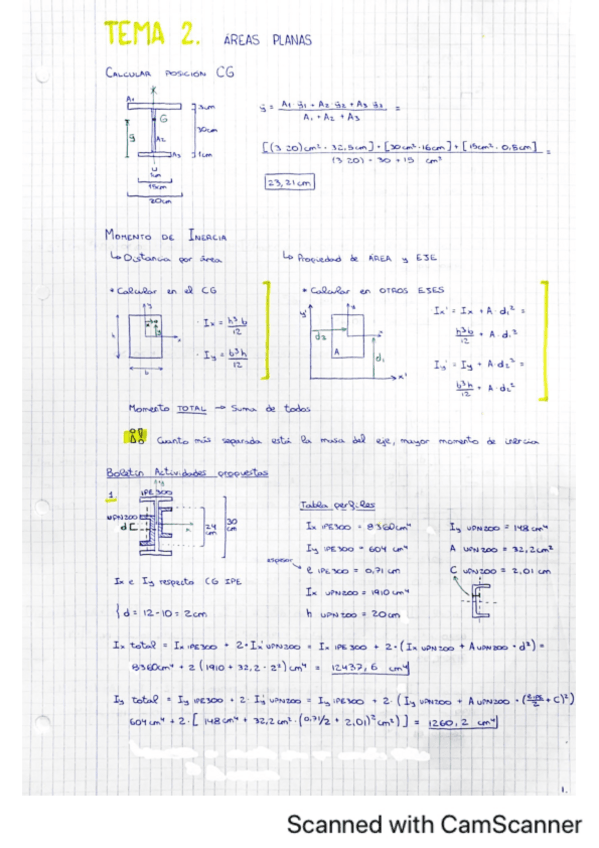 TEMA 2. ÁREAS PLANAS
CALCULAR POSICIÓN CG
A1
3cm
G
30cm
A2
A3
1cm
1cm
15cm
20cm
ȳ = A1 ȳ1 + A2 ȳ2 + A3 ȳ3 / A1 + A2 + A3 =
[(3·20)cm² · 32,5cm] + [30cm² · 16cm] + [15cm² · 0,5cm] / (3·20) + 30 + 15 cm² =
23,21cm
MOMENTO DE INERCIA
↳ Distancia por área
↳ Propiedad de ÁREA y EJE
* Calcular en el CG
* Calcular en OTROS EJES
· Ix = h³b/12
· Iy = b³h/12
h
b
y'
x'
d2
d1
A
Ix' = Ix + A · d1² =
h³b/12 + A · d1²
Iy' = Iy + A · d2² =
b³h/12 + A · d2²
Momento TOTAL → Suma de todos
Cuanto más separada está la masa del eje, mayor momento de inercia
Boletín Actividades propuestas
1
IPE 300
UPN200
d
24 cm
30 cm
Ix e Iy respecto CG IPE
{ d = 12 - 10 = 2cm
Tabla perfiles
Ix IPE300 = 8360cm⁴
Iy IPE300 = 604 cm⁴
espesor
e IPE300 = 0,71 cm
Ix UPN200 = 1910 cm⁴
h UPN200 = 20cm
Iy UPN200 = 148 cm⁴
A UPN200 = 32,2cm²
C UPN200 = 2,01 cm
Ix total = Ix IPE300 + 2·Ix' UPN200 = Ix IPE300 + 2·(Ix UPN200 + A UPN200 · d²) =
8360cm⁴ + 2(1910 + 32,2 · 2²)cm⁴ = 12437,6 cm⁴
Iy total = Iy IPE300 + 2·Iy' UPN200 = Iy IPE300 + 2·(Iy UPN200 + A UPN200 · (e IPE/2 + C)²)
604cm⁴ + 2·[148cm⁴ + 32,2cm² · (0,71/2 + 2,01)² cm²)] = 1260,2 cm⁴
1.
Scanned with CamScanner